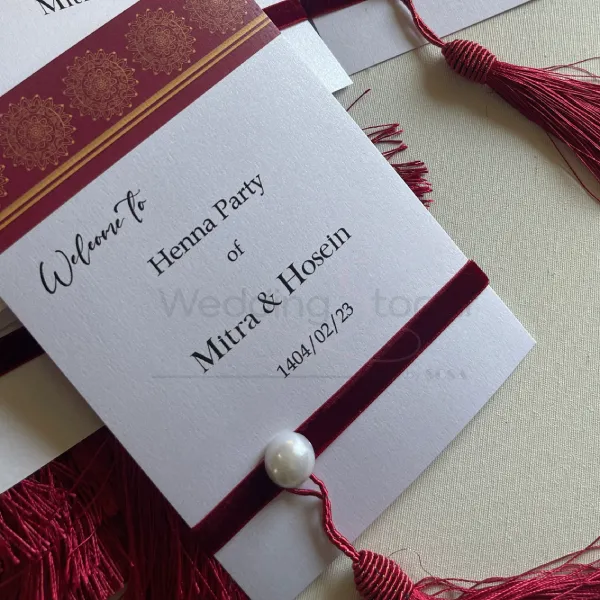 Mit
Welcome to
Henna Party
of
Mitra & Hosein
1404/02/23
Wedding